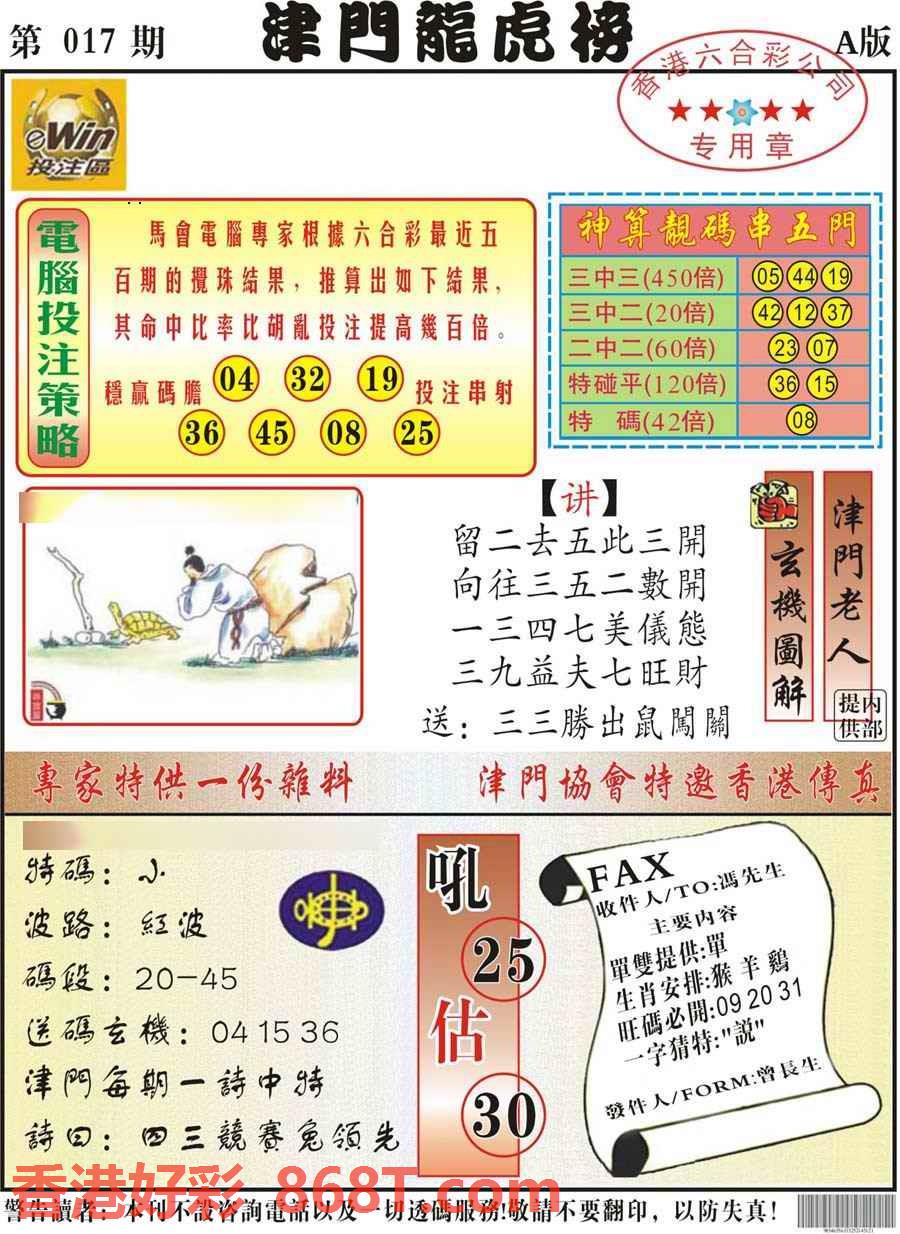 第 017 期
津門龍虎榜
A版
香港六合彩公司
专用章
eWin
投注區
電腦投注策略
馬會電腦專家根據六合彩最近五
百期的攪珠結果，推算出如下結果，
其命中比率比胡亂投注提高幾百倍。
穩贏碼膽 04 32 19 投注串射
36 45 08 25
神算靚碼串五門
三中三(450倍) 05 44 19
三中二(20倍) 42 12 37
二中二(60倍) 23 07
特碰平(120倍) 36 15
特 碼(42倍) 08
【讲】
留二去五此三開
向往三五二數開
一三四七美儀態
三九益夫七旺財
送：三三勝出鼠闖關
玄機圖解
津門老人
内部提供
專家特供一份雜料
津門協會特邀香港傳真
特碼：小
波路：紅波
碼段：20-45
送碼玄機：04 15 36
津門每期一詩中特
詩曰：四三競賽兔領先
吼
25
估
30
FAX
收件人/TO:馮先生
主要內容
單雙提供:單
生肖安排:猴 羊 鷄
旺碼必開:09 20 31
一字猜特:"説"
發件人/FORM:曾長生
香港好彩 868T.com
警告讀者：本刊不設咨詢電話以及一切透碼服務!敬請不要翻印，以防失真!